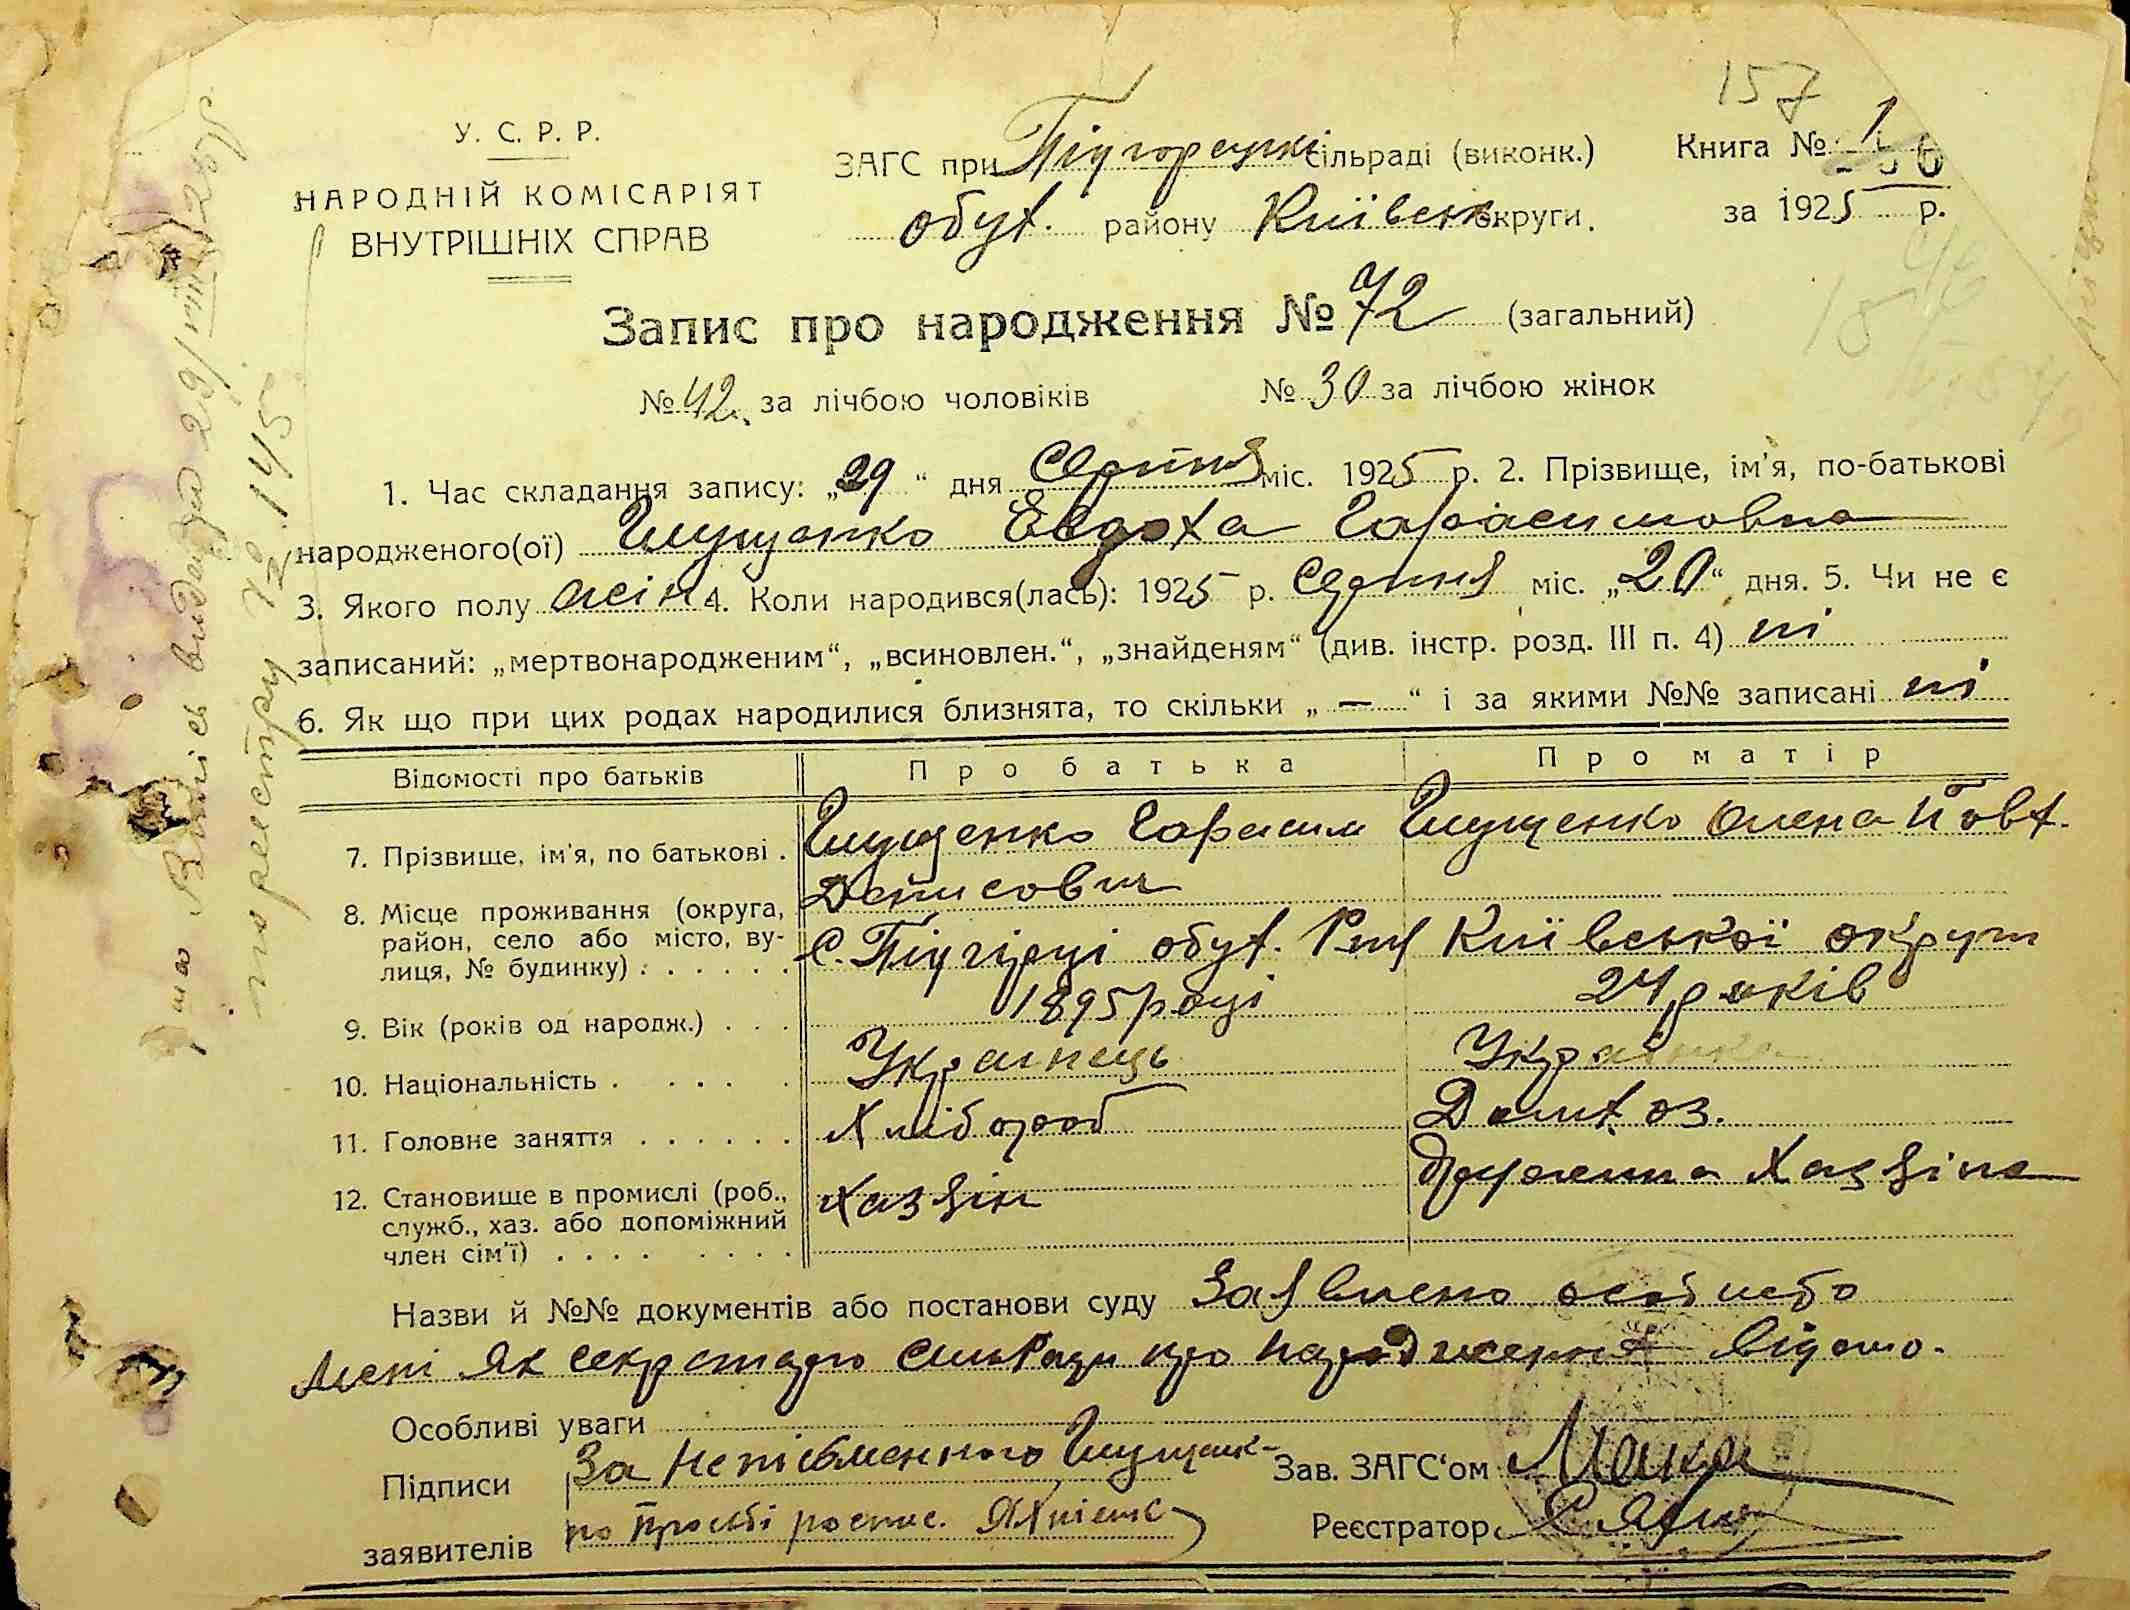 157
У. С. Р. Р.
НАРОДНІЙ КОМІСАРІЯТ
ВНУТРІШНІХ СПРАВ
ЗАГС при Підгорецкі сільраді (виконк.)
Обух. району Київськ округи.
Книга № 1
за 1925 р.
Запис про народження № 72 (загальний)
№ 42. за лічбою чоловіків № 30 за лічбою жінок
1. Час складання запису: „29“ дня Серпня міс. 1925 р. 2. Прізвище, ім'я, по-батькові
народженого(ої) Глущенко Евдоха Гарасимовна
3. Якого полу жін 4. Коли народився(лась): 1925 р. Серпня міс. „20“ дня. 5. Чи не є
записаний: „мертвонародженим“, „всиновлен.“, „знайденям“ (див. інстр. розд. III п. 4) ні
6. Як що при цих родах народилися близнята, то скільки „ — “ і за якими №№ записані ні
Відомості про батьків Про батька Про матір
7. Прізвище, ім'я, по батькові . Глущенко Гарасим Глущенко Олена
Денисович
8. Місце проживання (округа, район, село або місто, ву-
лиця, № будинку) . . . . . . С. Підгірці обух. Рай Київської округи
9. Вік (років од народж.) . . . 1895 році 24 років
10. Національність . . . . . Українець Українка
11. Головне заняття . . . . . . Хлібороб Домх. оз.
12. Становище в промислі (роб., Хазяін Дружина Хазяіна
служб., хаз. або допоміжний
член сім'ї) . . . . . . . .
Назви й №№ документів або постанови суду Заявлено особисто
мені як секретарю сільРади про народження відомо.
Особливі уваги
Підписи За Неписьменного Глущенк-
заявителів по прозьбі роспис.
Зав. ЗАГС'ом
Реєстратор
Випись видана 29/VIII
по реєстру № 145